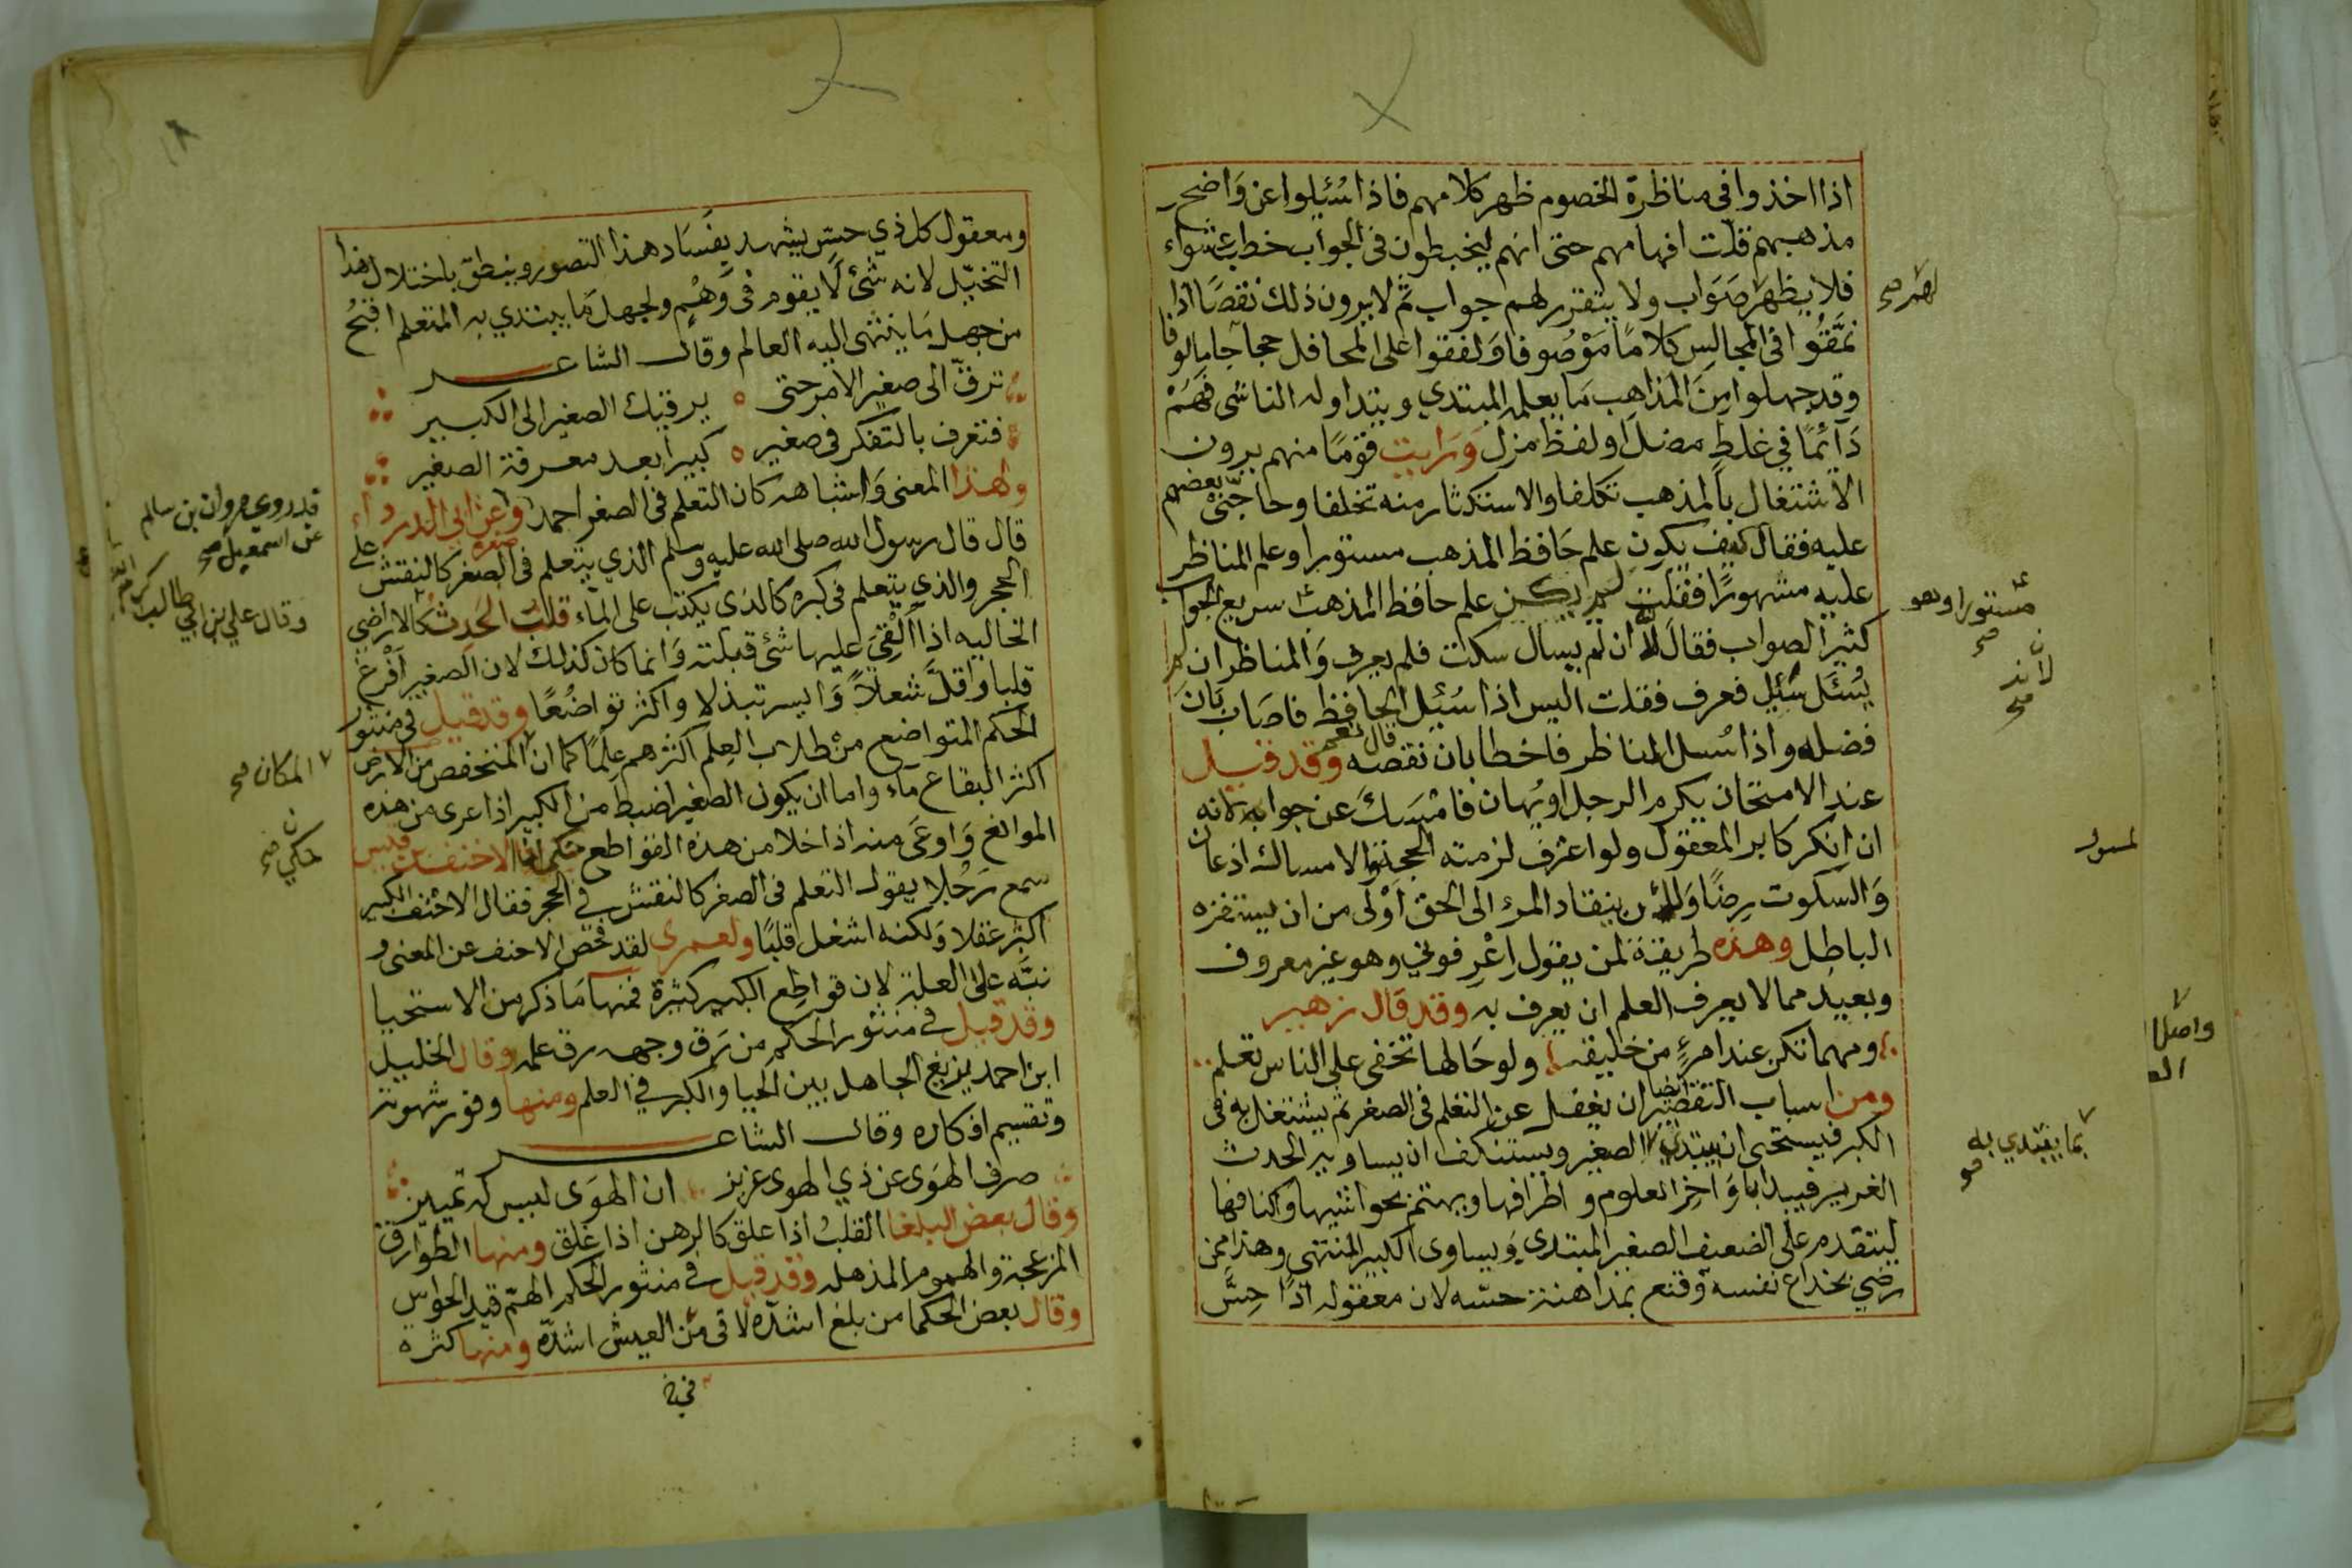 اذا اخذوا في مناظرة الخصوم ظهر كلامهم فاذا سُئِلوا عن وَاضح
مذهبهم قلّت افهامهم حتى انهم ليخبطون في الجواب خطب عشواء
فلا يظهر صَوَاب ولا يتقرر لهم جواب ثم لا يرون ذلك نقصًا اذا
نمَّقُوا في المجالس كلامًا مَوْصُوفا وَلفقوا على المحافل حجاجا مالوفا
وقد جهلوا مِنَ المذاهب مَا يعلمه المبتدي ويتداوله الناشى فهُمْ
دَآئمًا في غلطٍ مضل او لفظ مزل وَرَايت قومًا منهم يرون
الاشتغال بالمذهب تكلفا والاستكثار منه تخلفا وحاجّنى بعضهم
عليه فقال كيف يكون علم حَافظ المذهب مستورا وعلم المناظر
عليه مشهورًا فقلت لم يكن علم حافظ المذهب سريع الجواب
كثير الصواب فقال لأ ان لم يسال سكت فلم يعرف وَالمناظر ان لم
يُسْئَل سُئِل فعرف فقلت اليس اذا سُئِل الحافظ فاصَاب بَانَ
فضله واذا سُئل المناظر فاخطا بان نقصه قال نعم وقد قيل
عند الامتحان يكرم الرجل او يُهان فامْسَكَ عن جوابه لانه
ان انكر كابر المعقول ولو اعترف لزمته الحجة والامساك اذعان
وَالسكوت رِضًا وَلان ينقاد المرء الى الحق اَوْلى من ان يستفزه
الباطل وهذه طريقة لمن يقول اِعْرِفوني وهو غير معروف
وبعيد مما لا يعرف العلم ان يعرف به وقد قال زهير
ومهما تكن عند امرءٍ من خليقه ولو خَالها تخفى على الناس تعلم
ومن اسباب التقصير ايضا ان يغفل عن التعلم في الصغر ثم يشتغل به في
الكبر فيستحى ان يبتدى الصغير ويستنكف ان يساويه الحدث
الغرير فيبدا باوَاخِر العلوم واطرافها ويهتم بحواشيها واكنافها
ليتقدم على الضعيف الصغير المبتدي وَيساوى الكبير المنتهى وهذا ممن
رضي بخداع نفسه وقنع بمداهنة حسّه لان معقوله اذًا حِسَّ
لهم صح
مستورا وهو
صح
لأنه
صح
بما يبتدي به
صح
١٨
ومعقول كل ذي حسّ يشهد بفسَاد هذا التصور وينطق باختلال هذا
التخيّل لانه شئ لَا يقوم في وَهْم ولجهل مَا يبتدي به المتعلم اقبحُ
من جهل مَا ينتهى اليه العالم وقال الشاعر
ترقّ الى صغير الامر حتى ه يرقيك الصغير الى الكبير
فتعرف بالتفكر في صغير ه كبيرا بعد معرفة الصغير
ولهذا المعنى وَاشباهه كان التعلم في الصغر احمد وعن ابي الدرداء
قال قال رسول الله صلى الله عليه وسلم الذي يتعلم في الصغر صغره كالنقش على
الحجر والذي يتعلم في كبره كالذي يكتب على المآء قلب الحَدث كالاراضي
الخاليه اذا اُلْقِىَ عليها شئ قبلته وَانما كان كذلك لان الصغير اَفْرغ
قلبا واقلّ شعلاً وَايسر تبذلا واكثر تواضُعًا وقد قيل في منثور
الحكم المتواضع من طلاب العِلم اكثرهم عِلمًا كما ان المنخفض من الارض
اكثر البقاع مَاء واما ان يكون الصغير اضبط من الكبير اذا عرى من هذه
الموانع وَاوعَى منه اذا خلا من هذه القواطع الاخنف بن قيس
سمع رَجُلا يقول التعلم في الصغر كالنقش في الحجر فقال الاخنف الكبير
اكثر عقلا وَلكنه اشغل قلبًا ولعمرى لقد فحَصَ الاحنف عن المعنى و
نبَّه على العلة لان قواطِع الكبير كثيرة فمنها مَا ذكر من الاستحيا
وقد قيل في منثور الحكم من رَق وجهه رق علمه وقال الخليل
ابن احمد يزيغ الجاهل بين الحيا والكبر في العلم ومنها وفور شهوته
وتقسيم افكاره وقال الشاعر
صرف الهوَى عن ذي الهوى عزيز ان الهوَى ليس له تمييز
وقال بعض البلغا القلبُ اذا علق كالرهن اذا غلق ومنها الطوَارق
المزعجة والهموم المذهله وقد قيل في منثور الحكم الهمّ قيد الحواس
وقال بعض الحكما من بلغ اشدّه لاقى من العيش اشدّه ومنها كثره
قد روي مروان بن سالم
عن اسمعيل صح
وقال علي بن ابي طالب
المكان صح
حكي صح